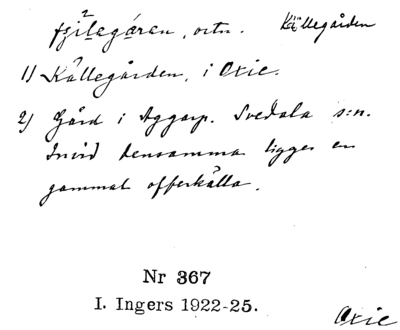 ortn. Källegården
1) Källegården, i Oxie.
2) Gård i Aggarp. Svedala s:n.
Invid densamma ligger en
gammal offerkälla.
Nr 367
I. Ingers 1922-25.
Oxie